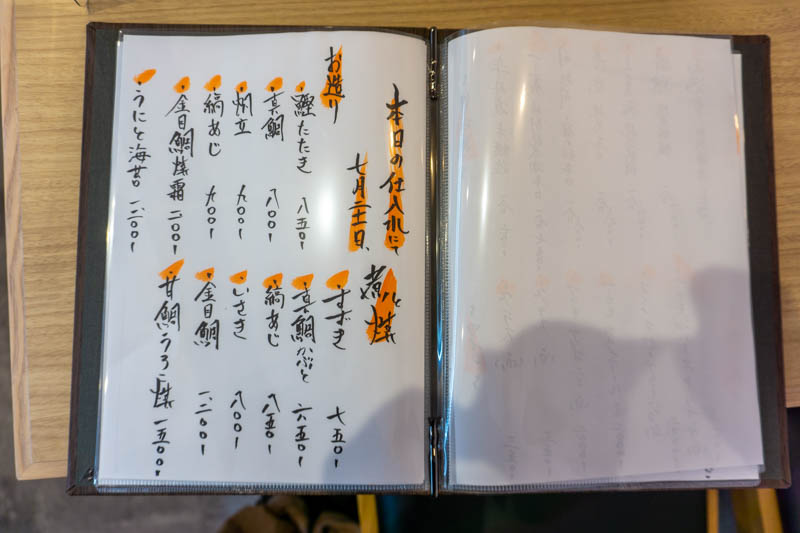 本日の仕入れにて
七月二十一日、
お造り
・鰹たたき 八五〇ー
・真鯛 八〇〇ー
・帆立 九〇〇ー
・縞あじ 九〇〇ー
・金目鯛焼霜 一二〇〇ー
・うにと海苔 一二〇〇ー
煮いと焼
・すずき 七五〇ー
・真鯛かぶと 六五〇ー
・縞あじ 八五〇ー
・いさき 八〇〇ー
・金目鯛 一二〇〇ー
・甘鯛うろこ焼 一五〇〇ー